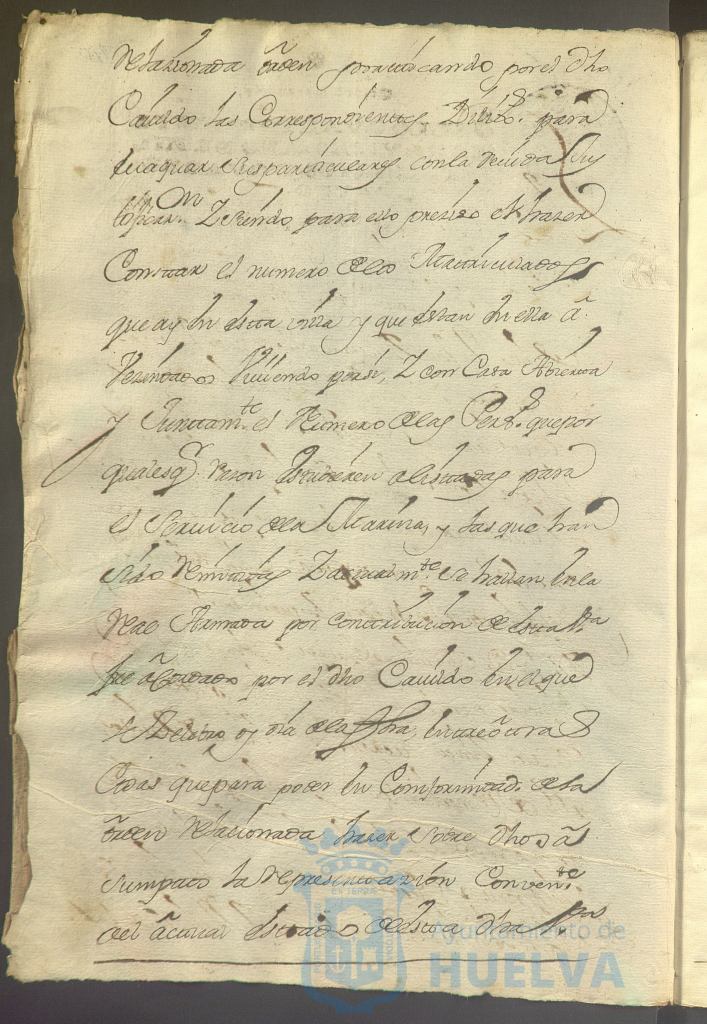 Relazionada orden practicando por el dho
Cavildo las Correspondientes Dilix.s para
Evaquar sus particulares con la devida
Y siendo para ello preziso el hazer
Constar el numero de los Matriculados
que ay en esta villa y que estan en ella a
Vezindados Viviendo por si, Y con Casa Abierta
y Juntam.te el Numero de las Pers.s que por
qualesq.r razon estubieren alistadas para
el Servicio de la Marina, y las que han
sido Remitidas Y actualm.te se hallan en la
Real Armada por contribucion de esta V.a
fue acordado por el dho Cavildo en el que
se Zelebro oy dia de la fha, entre otras
Cosas que para poder en Conformidad de la
orden Relacionada hazer sobre dhos a
sumptos la Representazion Conven.te
del actual estado de esta dha
EN TERRA
Ayuntamiento de
HUELVA